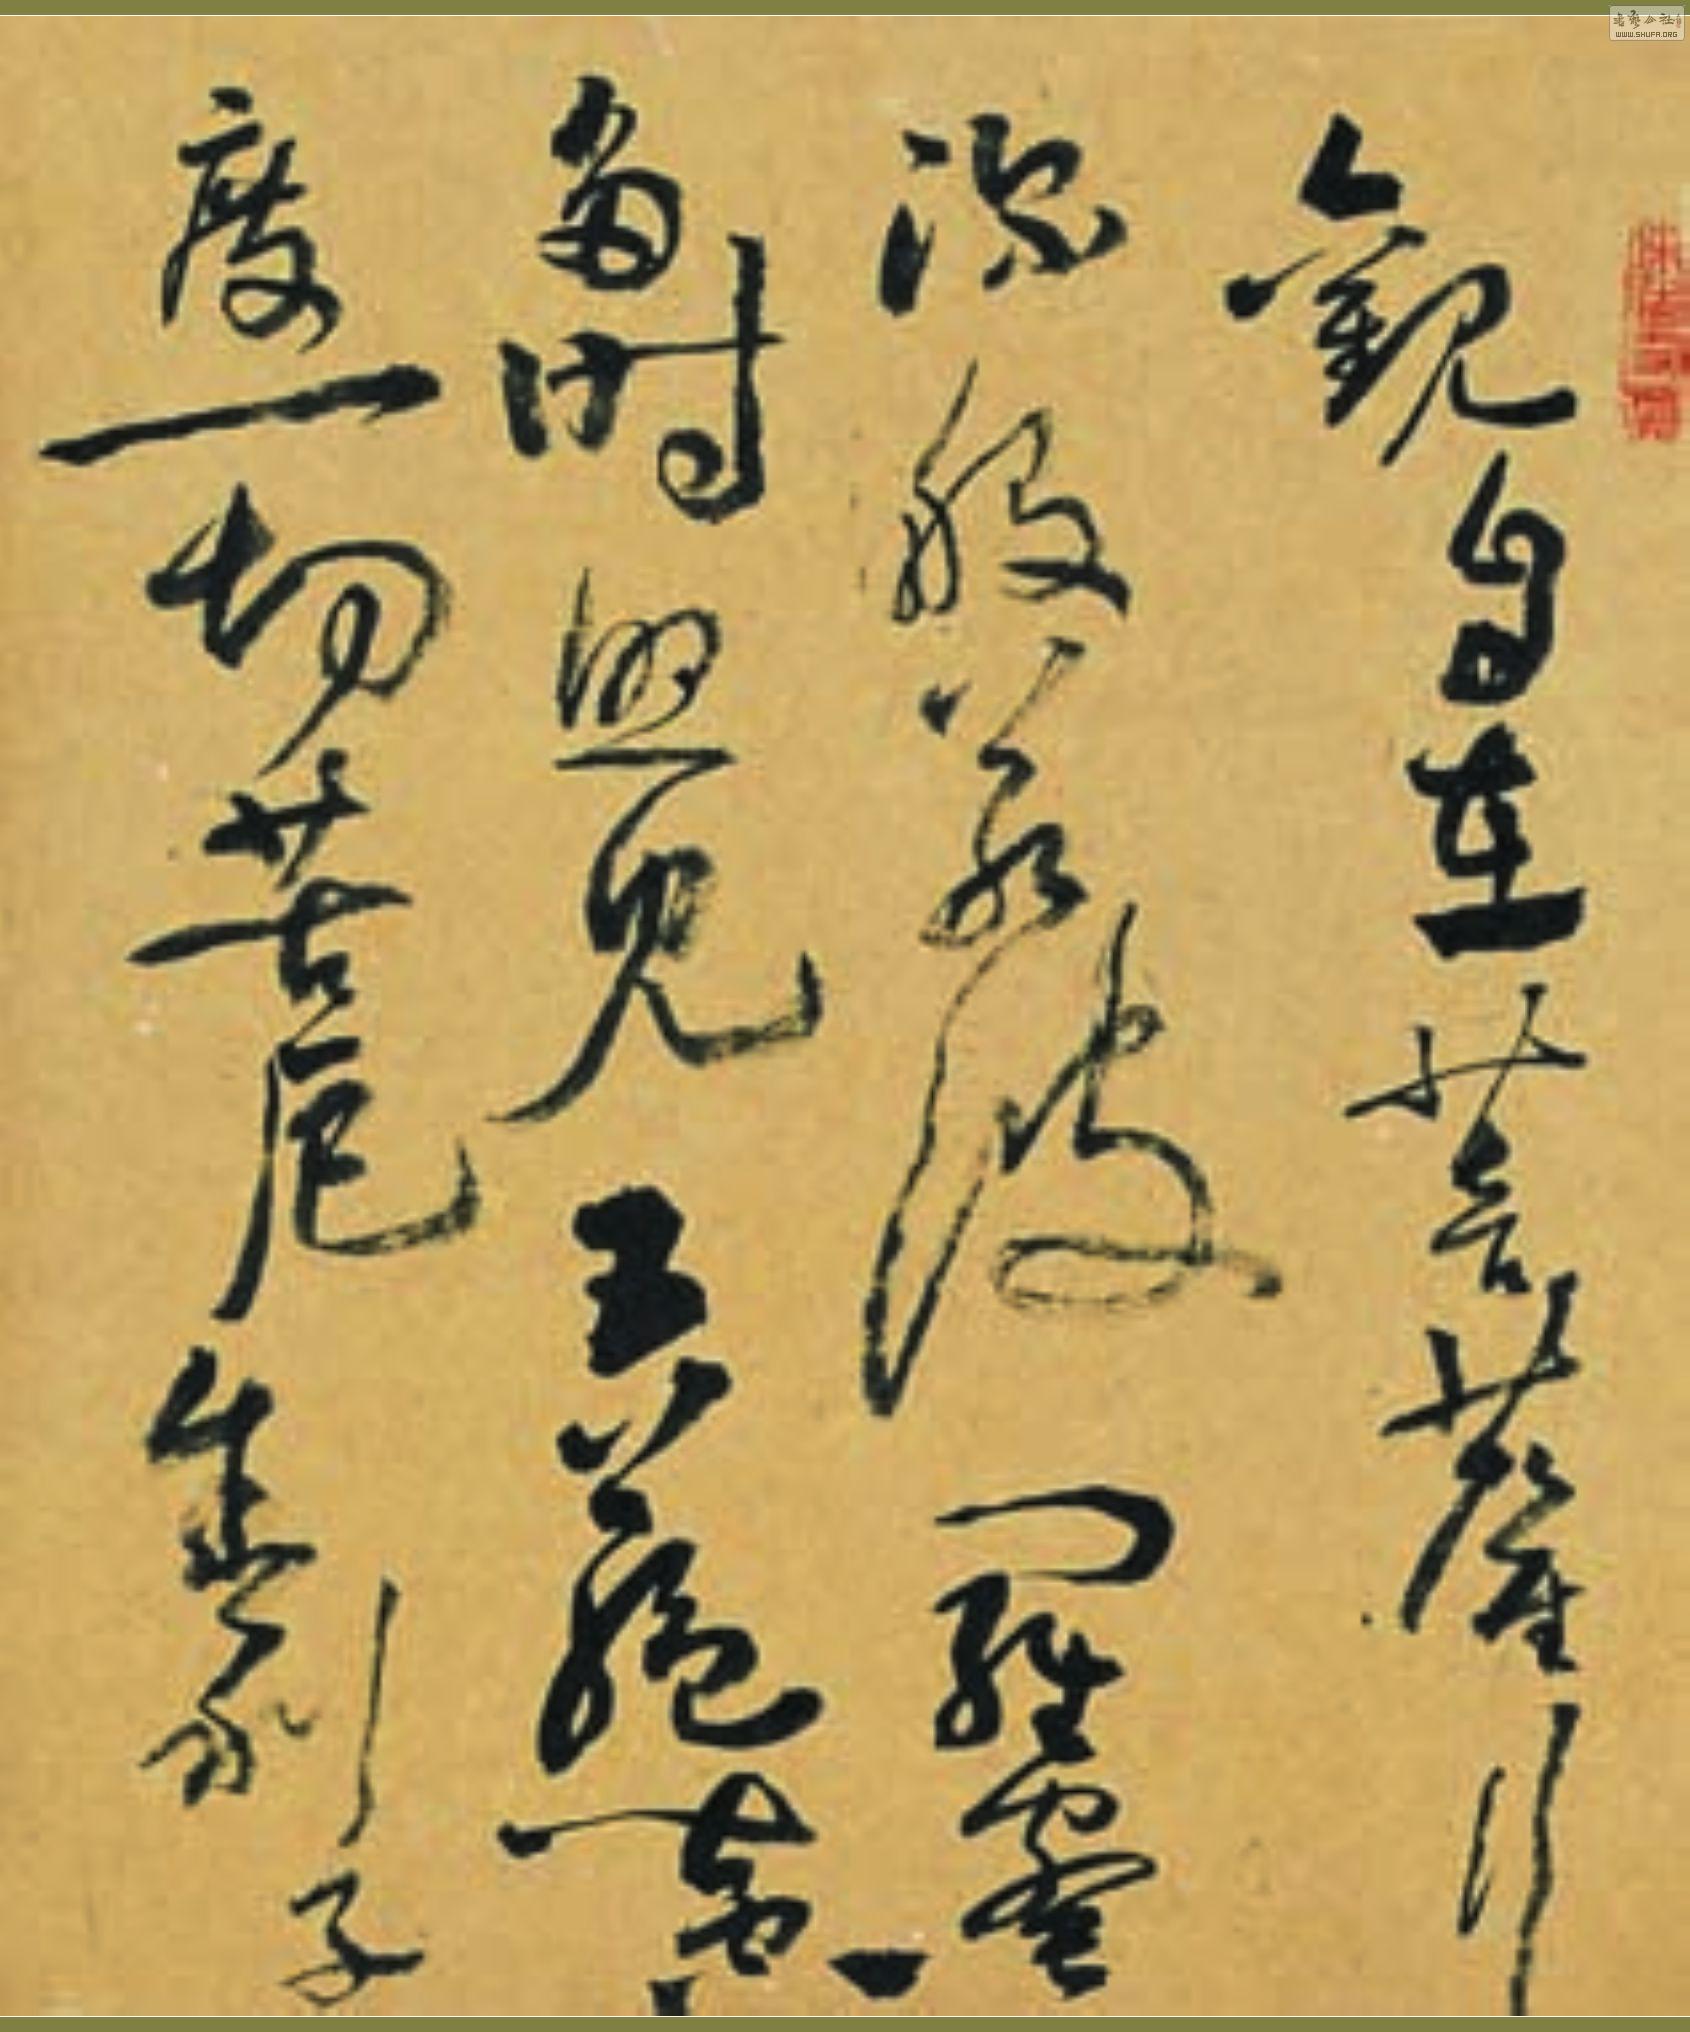 觀自在菩薩行
深般若波羅蜜
多時照見五蘊皆
度一切苦厄舍利子
WWW.SHUFA.ORG